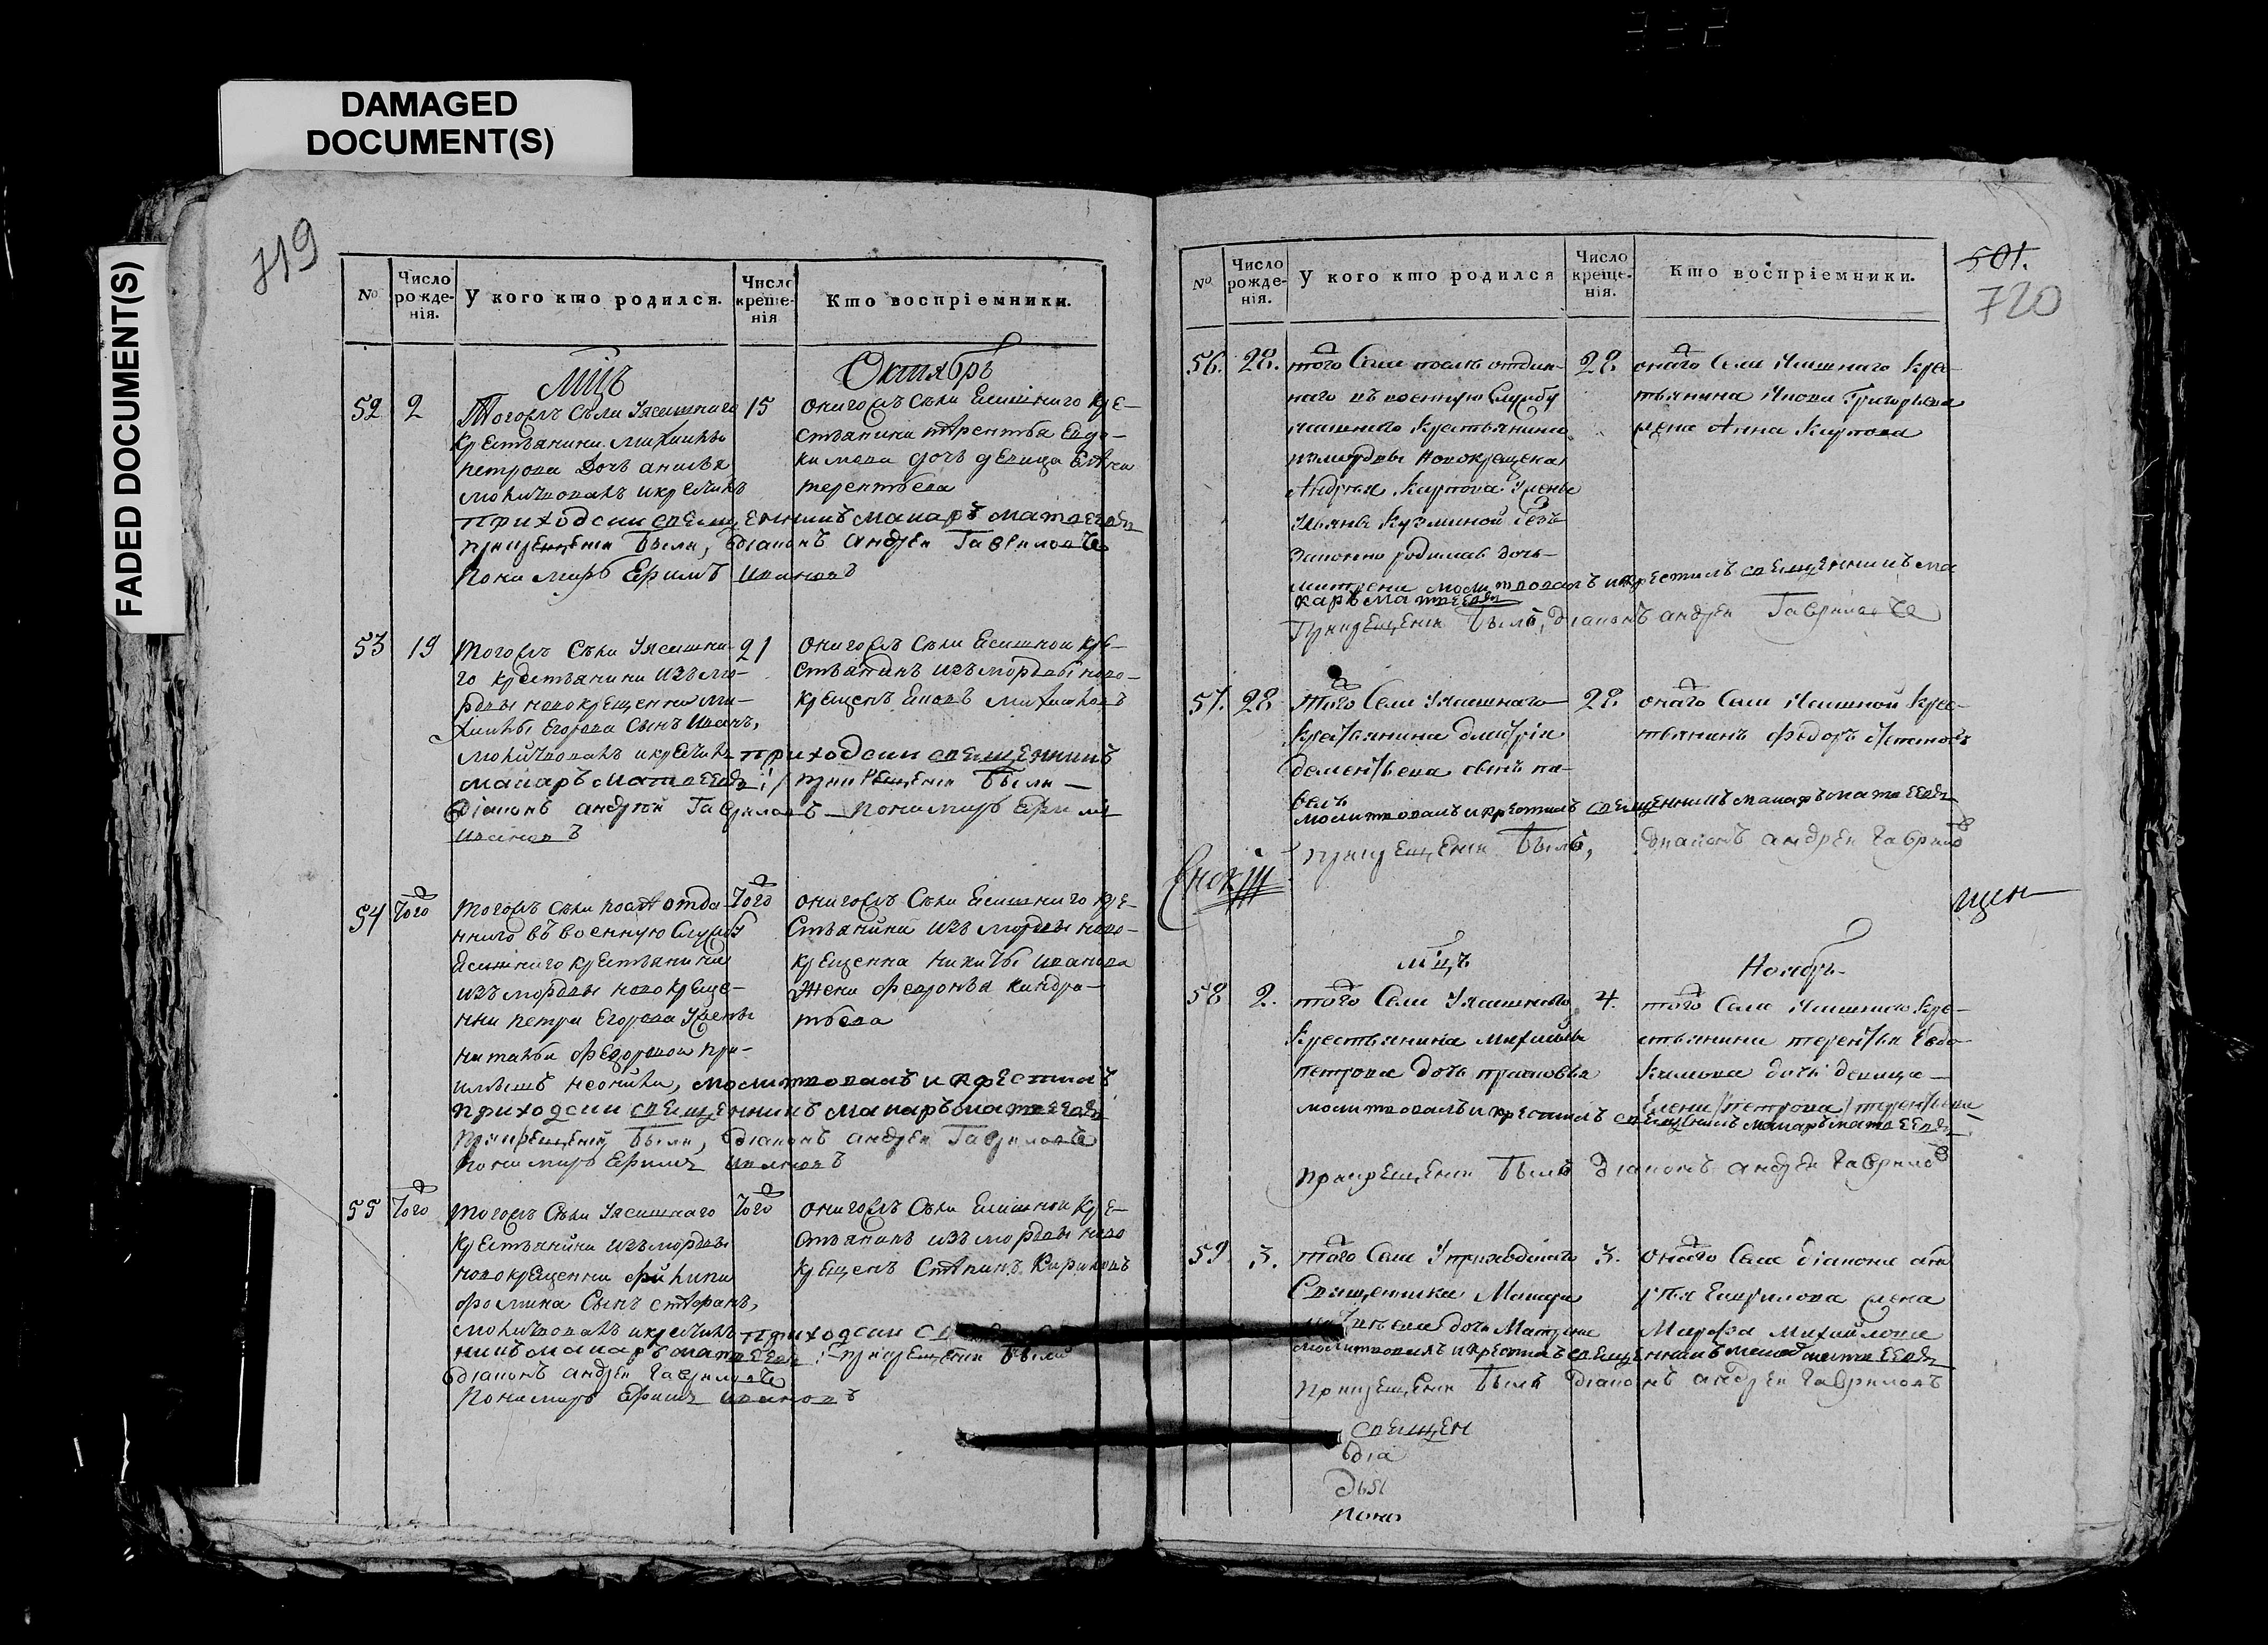 DAMAGED
DOCUMENT(S)
FADED DOCUMENT(S)
719
№
Число рожденія.
У кого кто родился.
Число крещенія
Кто воспріемники.
Мцъ
Октябръ
52
2
Тогожъ Села Уясашнаго
крестьянина Михайлы
петрова Дочь
молитвовалъ и крестилъ
приходскии священникъ макаръ матвеевъ
при крещении были, діаконъ андреи Гавриловъ
Пономарь Ефимъ Ивановъ
15
оногожъ Села Есашного кре-
стьянина терентья Евдо-
кимова дочь девица Елена
терентьева
53
19
Тогожъ Села Уясашна-
го крестьянина изъ мо-
рдвы новокрещенна ми-
хаилы Егорова Сынъ Иванъ,
молитвовалъ и крестилъ приходскии священникъ
макаръ матвеевъ / при крещении были —
діаконъ андреи Гавриловъ — Пономарь Ефимъ
Ивановъ
21
оногожъ Села Есашнои кре-
стьянинъ изъ мордвы ново-
крещенъ михаиловъ
54
Того
Тогожъ Села после отда-
ннаго въ военную Службу
Есашнаго крестьянина
изъ мордвы новокреще-
нни петра Егорова Ужены
натальи федоровои при-
молитвовалъ и крестилъ
приходскии священникъ макаръ матвеевъ
при крещении были, діаконъ андреи Гавриловъ
Пономарь Ефимъ Ивановъ
Того
оногожъ Села Есашнаго кре-
Стьянина изъ мордвы ново-
крещенна никиты Иванова
Жена Февронья кандра-
тьева
55
Того
Тогожъ Села Уясашнаго
крестьянина изъ мордвы
новокрещенна филипа
фомина Сынъ стефанъ,
молитвовалъ и крестилъ приходскии
макаръ матвеевъ при крещении были
діаконъ андреи Гавриловъ
Пономарь Ефимъ Ивановъ
Того
оногожъ Села Есашнои кре-
стьянинъ изъ мордвы ново
крещенъ Степанъ Кириловъ
№
Число рожденія.
У кого кто родился
Число крещенія.
Кто воспріемники.
501.
720
56.
28.
того Села послѣ отдан-
наго въ военную Службу
ясашнаго крестьянина
изъ мордвы новокрещена
Андрея Карпова Ужены
Ульяны Кузминой безъ
законно родилась дочь
молитвовалъ и крестилъ священникъ ма
каръ матвеевъ
При крещении былъ, діаконъ андреи Гавриловъ
28.
онаго Села Ясашнаго крес-
тьянина Якова Григорьева
жена Анна Карпова
57.
28
Того Села Уясашнаго
крестьянина дмитрія
дементьева сынъ па-
велъ
молитвовалъ и крестилъ священникъ макаръ матвеевъ
при крещении былъ, діаконъ андреи Гавриловъ
28.
онаго Села Ясашной крес-
тьянинъ федоръ
щен
мцъ
Ноябрь
58
2.
того Села Уясашнаго
крестьянина михайлы
петрова дочь прасковья
молитвовалъ и крестилъ макаръ матвеевъ
при крещении былъ діаконъ андреи Гавриловъ
4.
того Села Ясашнаго кре-
стьянина терентья Евдо-
кимова дочь девица —
Елена /петрова/ терентьева
59.
3.
того Села Уприходскаго
Священника Макара
матвеева дочь Матрена
молитвовалъ и крестилъ священникъ матвеевъ
При крещении былъ діаконъ андреи Гавриловъ
3.
онаго Села діакона ан
дрея Гаврилова жена
Марфа Михайлова
священ
діа
Дья
Поно